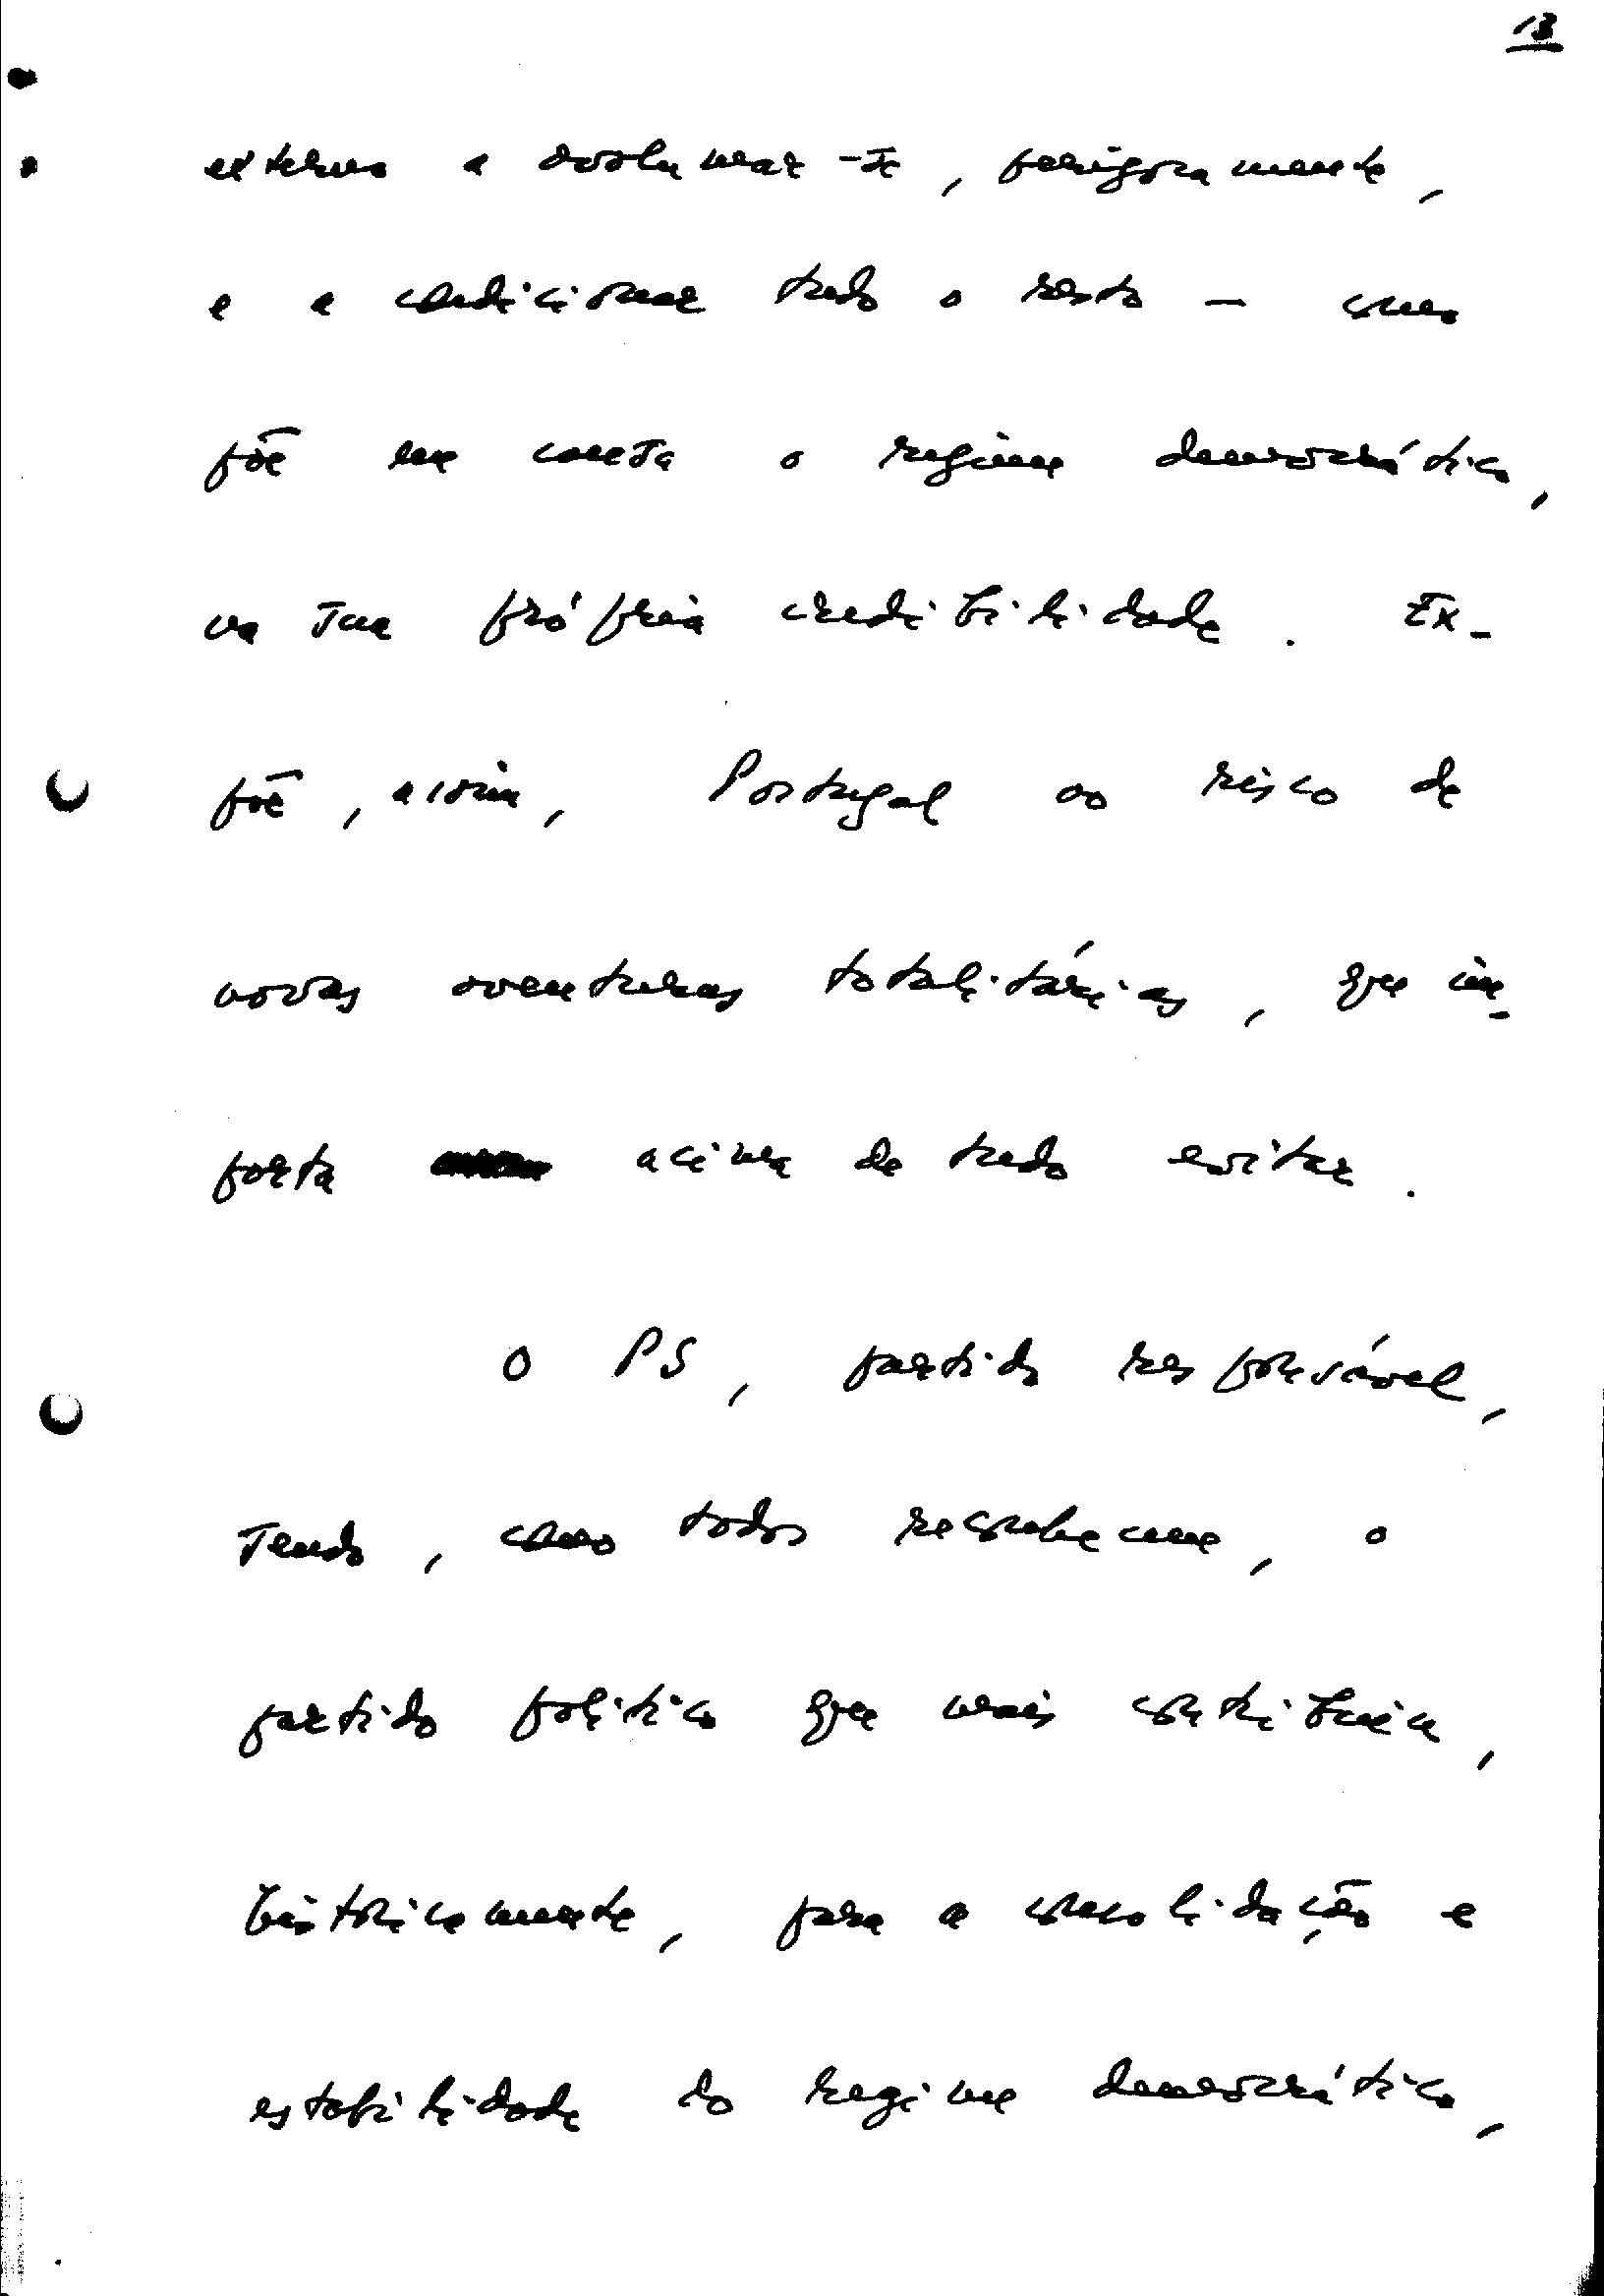 13
externa a avolumar-se, perigosamente,
e a condicionar tudo o resto — como
põe em causa o regime democrático,
na sua própria credibilidade. Ex-
põe, assim, Portugal ao risco de
novas aventuras totalitárias, que im-
porta acima de tudo evitar.
O PS, partido responsável,
sendo, como todos reconhecem, o
partido político que mais contribuiu,
històricamente, para a consolidação e
estabilidade do regime democrático,